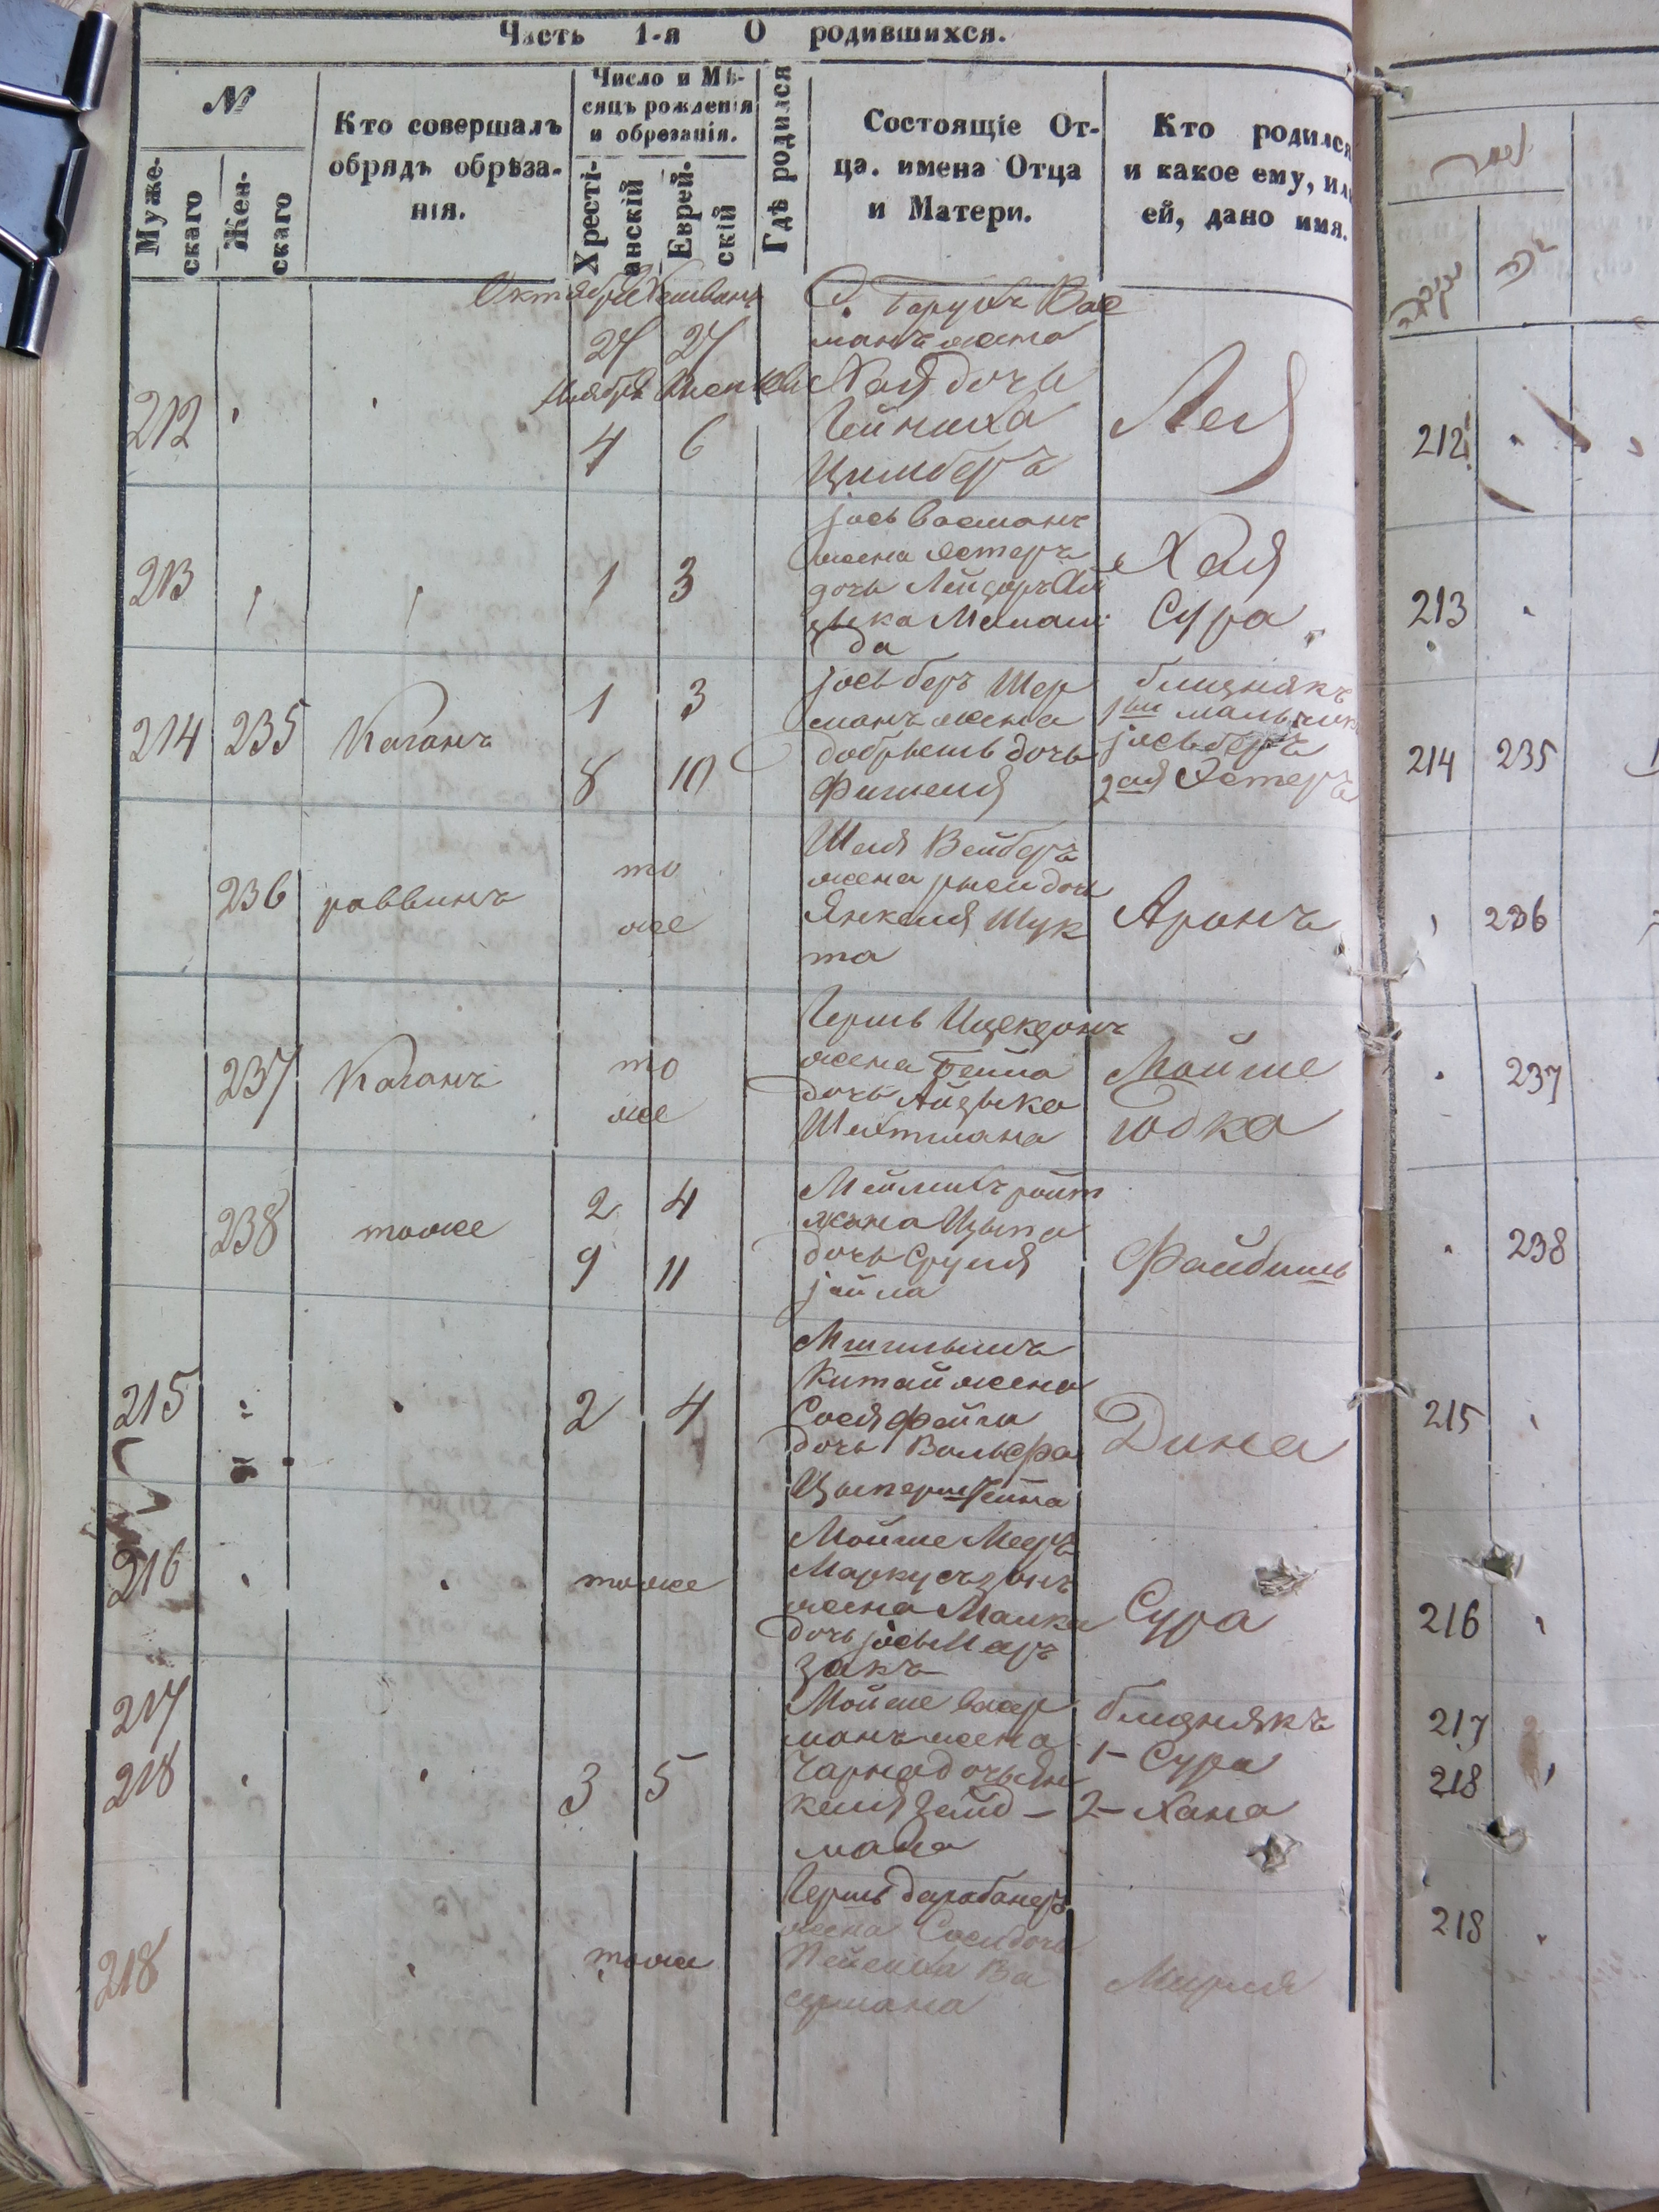 Часть 1-я О родившихся.
№
Муже-
скаго
Жен-
скаго
Кто совершалъ
обрядъ обрѣза-
нія.
Число и Мѣ-
сяцъ рожденія
и обрезанія.
Хресті-
анскій
Еврей-
скій
Гдѣ родился
Состоящіе От-
ца. имена Отца
и Матери.
Кто родился
и какое ему, или
ей, дано имя.
Октября Хешвана
24 27
Ноября
4 6
212
Барухъ Вас
манъ жена
Хая дочь
Цимберъ
Лея
213
1 3
Іось Васманъ
жена Эстеръ
дочь Лейзоръ Ай
зыка
да
Хая
Сура
214 235 Каганъ
1 3
8 10
Іось беръ Шер
манъ жена
добрышь дочь
Фишеля
близнякъ
1ый мальчикъ
Іосьберъ
2ая Эстеръ
236 раввинъ
то
же
Шая Вейберъ
жена рыси дочь
Янкеля Шук
та
Аронъ
237 Каганъ
то
же
Гершь Ицекзонъ
жена Бейла
дочь Айзыка
Шехтмана
Мойше
Юдка
238 тоже
2 4
9 11
ройт
жена Цыпа
дочь Сруля
Файбишь
215
2 4
Китай жена
Сося Фейга
дочь Вольфа
Дина
216
тоже
Мойше Мееръ
Маркусъзонъ
жена Малка
дочь Іось Мар
закъ
Сура
217
218
3 5
Мойше Васер
манъ жена
Чарна дочь Ян
келя Зейд –
мана
близнякъ
1– Сура
2– Хана
218
тоже
Гершь Барабанеръ
жена Соси дочь
Пейсиха Ва
сермана
Мирля
212
213
214 235
236
237
238
215
216
217
218
218